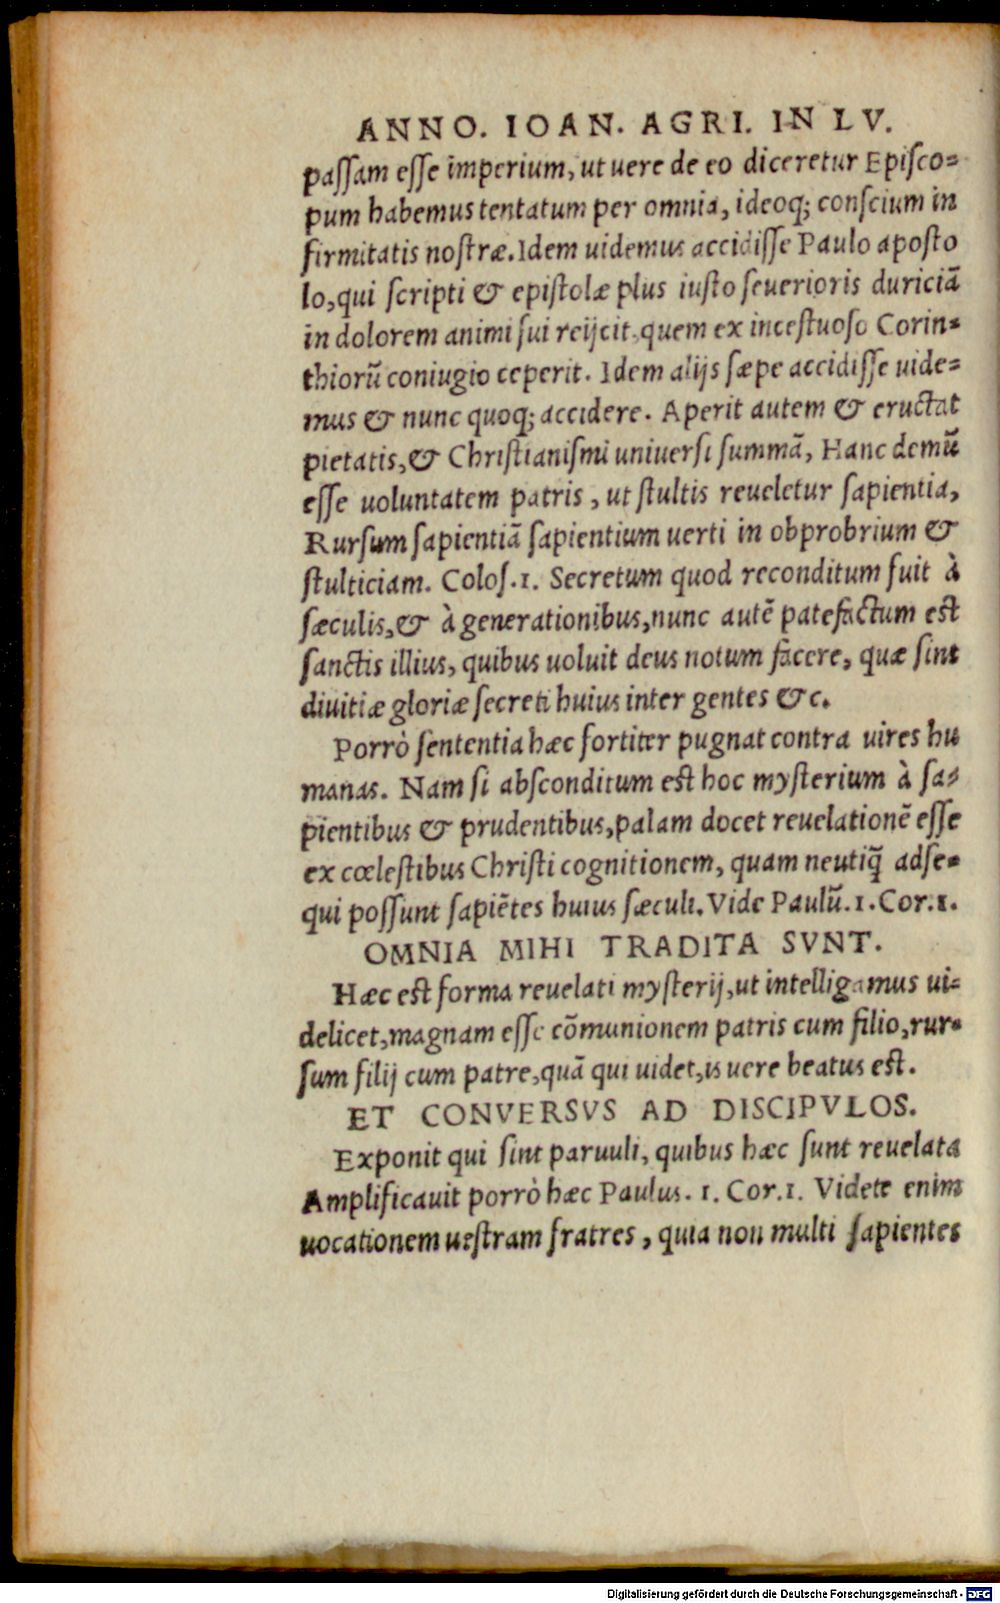 ANNO. IOAN. AGRI. IN LV.
paſſam eſſe imperium, ut uere de eo diceretur Epiſco=
pum habemus tentatum per omnia, ideoq; conſcium in
firmitatis noſtræ. Idem uidemus accidiſſe Paulo apoſto
lo, qui ſcripti & epiſtolæ plus iuſto ſeuerioris duriciā
in dolorem animi ſui reijcit, quem ex inceſtuoſo Corin=
thiorū coniugio ceperit. Idem alijs ſæpe accidiſſe uide=
mus & nunc quoq; accidere. Aperit autem & eructat
pietatis, & Chriſtianiſmi uniuerſi ſummā, Hanc demū
eſſe uoluntatem patris, ut ſtultis reueletur ſapientia,
Rurſum ſapientiā ſapientium uerti in obprobrium &
ſtulticiam. Coloſ. 1. Secretum quod reconditum fuit à
ſæculis, & à generationibus, nunc autē patefactum eſt
ſanctis illius, quibus uoluit deus notum facere, quæ ſint
diuitiæ gloriæ ſecreti huius inter gentes &c.
Porrò ſententia hæc fortiter pugnat contra uires hu
manas. Nam ſi abſconditum eſt hoc myſterium à ſa=
pientibus & prudentibus, palam docet reuelationē eſſe
ex cœleſtibus Chriſti cognitionem, quam neutiq̄ adſe=
qui poſſunt ſapiētes huius ſæculi. Vide Paulū. 1. Cor. 1.
OMNIA MIHI TRADITA SVNT.
Hæc eſt forma reuelati myſterij, ut intelligamus ui=
delicet, magnam eſſe cōmunionem patris cum filio, rur=
ſum filij cum patre, quā qui uidet, is uere beatus eſt.
ET CONVERSVS AD DISCIPVLOS.
Exponit qui ſint paruuli, quibus hæc ſunt reuelata
Amplificauit porrò hæc Paulus. 1. Cor. 1. Videte enim
uocationem ueſtram fratres, quia non multi ſapientes
Digitalisierung gefördert durch die Deutsche Forschungsgemeinschaft - DFG